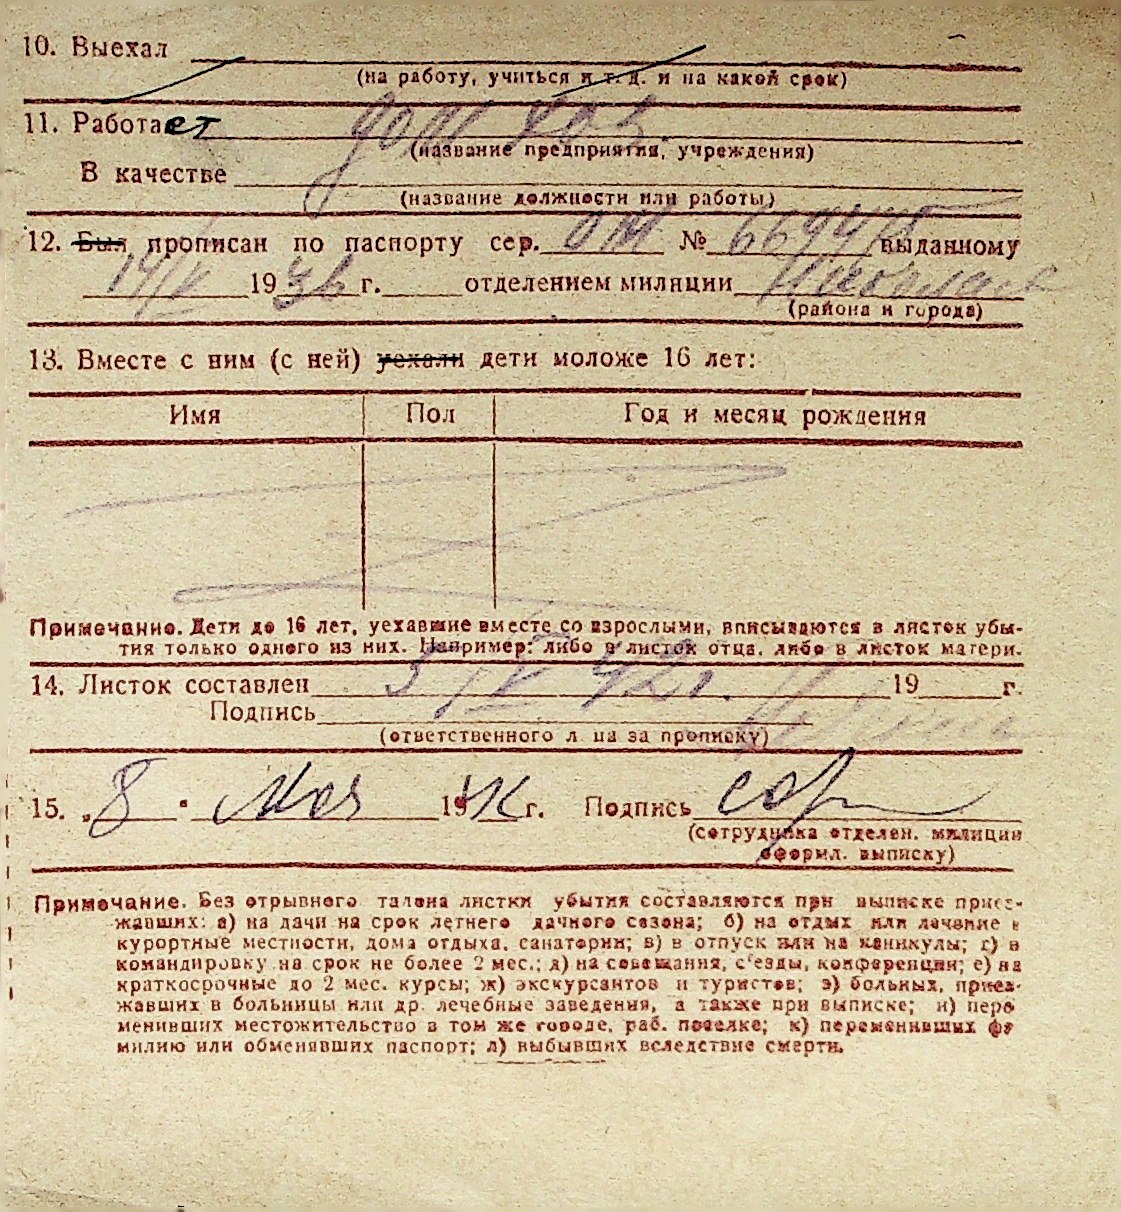 10. Выехал
(на работу, учиться и т. д. и на какой срок)
11. Работает дом хоз.
(название предприятия, учреждения)
В качестве
(название должности или работы)
12. Был прописан по паспорту сер. № выданному
14/V 1936 г. отделением милиции
(района и города)
13. Вместе с ним (с ней) уехали дети моложе 16 лет:
Имя Пол Год и месяц рождения
Примечание. Дети до 16 лет, уехавшие вместе со взрослыми, вписываются в листок убы-
тия только одного из них. Например: либо в листок отца, либо в листок матери.
14. Листок составлен 5 IV 42 г. 19 г.
Подпись
(ответственного лица за прописку)
15. „8" мая 19 г. Подпись
(сотрудника отделен. милиции
оформл. выписку)
Примечание. Без отрывного талона листки убытия составляются при выписке приез-
жавших: а) на дачи на срок летнего дачного сезона; б) на отдых или лечение в
курортные местности, дома отдыха, санатории; в) в отпуск или на каникулы; г) в
командировку на срок не более 2 мес.; д) на совещания, с'езды, конференции; е) на
краткосрочные до 2 мес. курсы; ж) экскурсантов и туристов; з) больных, приез-
жавших в больницы или др. лечебные заведения, а также при выписке; и) пере
менивших местожительство в том же городе, раб. поселке; к) переменивших фа
милию или обменявших паспорт; л) выбывших вследствие смерти.